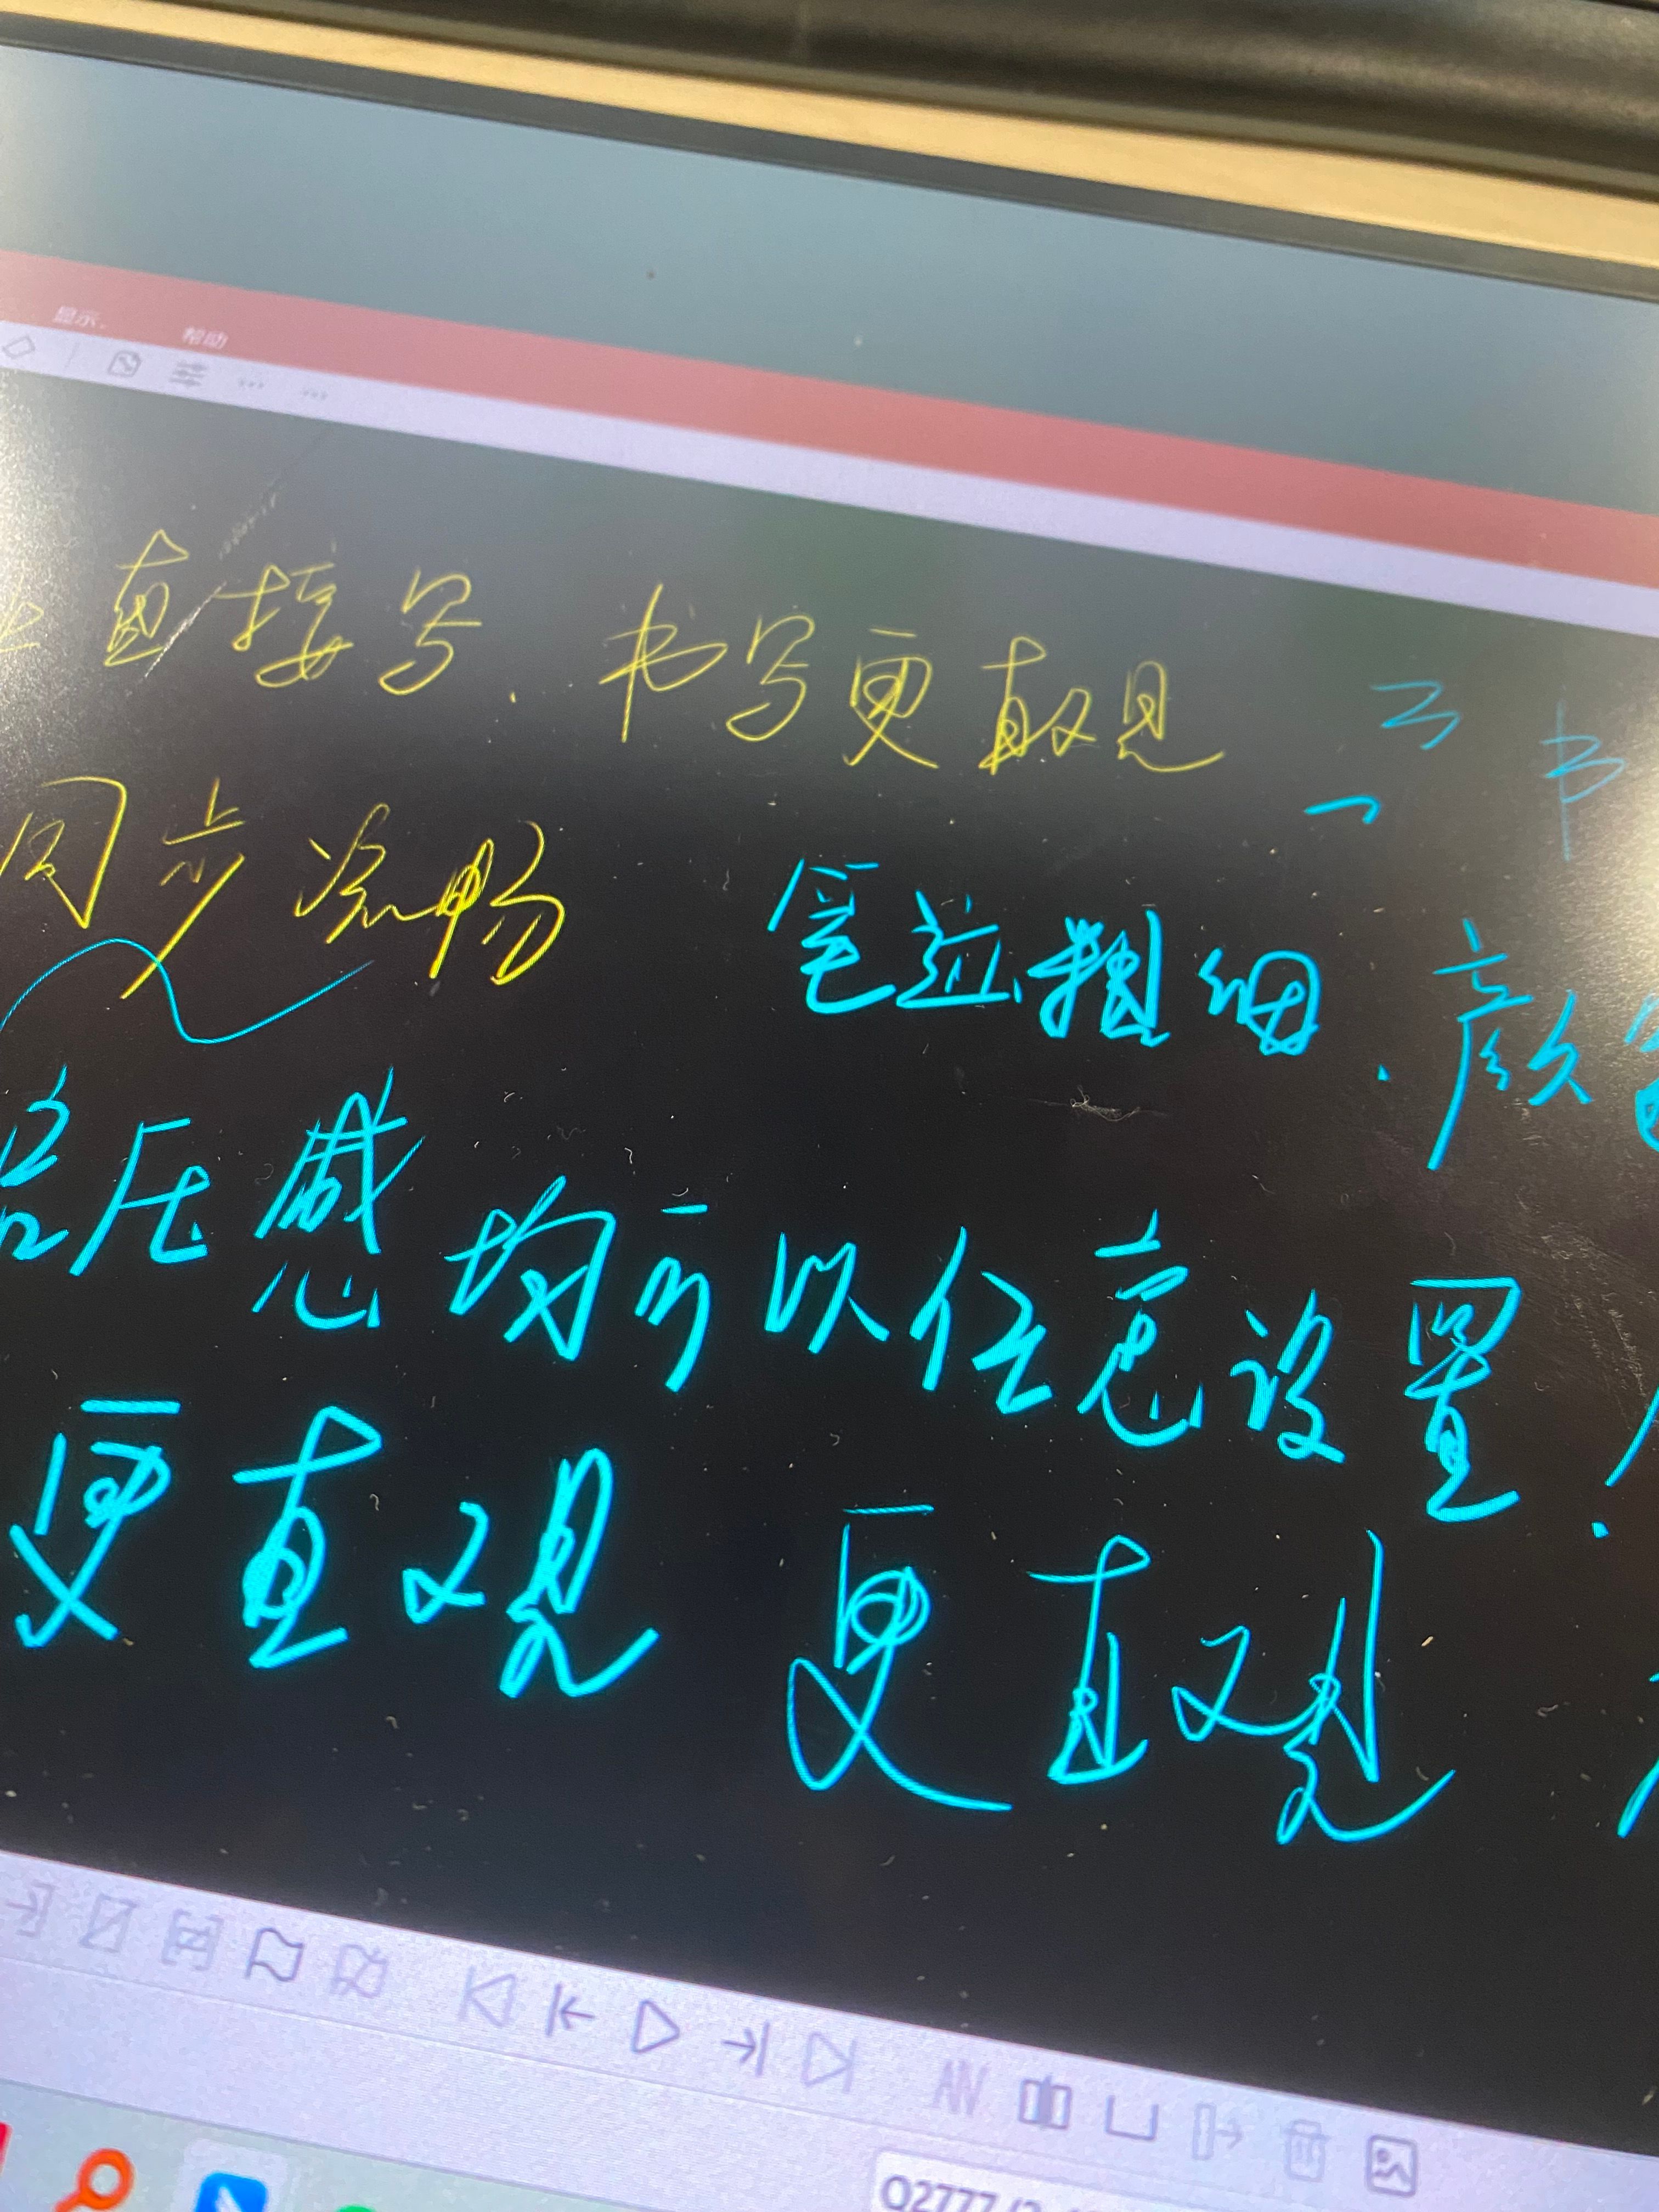 显示 帮助
直接写.书写更直观
同步流畅
笔迹粗细.颜色
压感 均可以任意设置!
更直观 更直观
Q2777